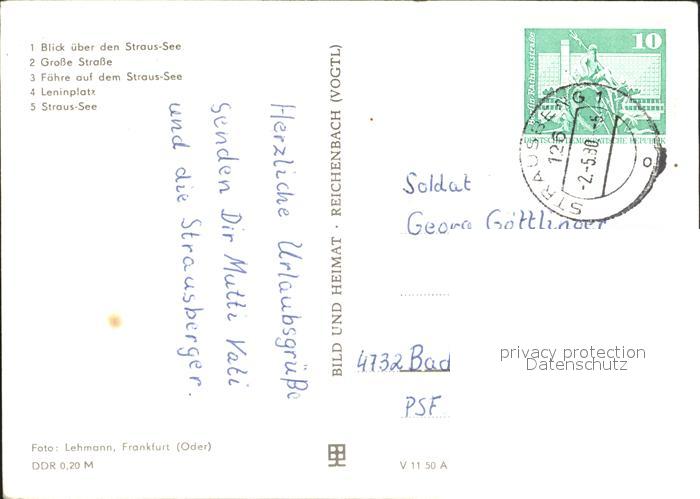 1 Blick über den Straus-See
2 Große Straße
3 Fähre auf dem Straus-See
4 Leninplatz
5 Straus-See
Herzliche Urlaubsgrüße
senden Dir Mutti Vati
und die Strausberger.
Foto: Lehmann, Frankfurt (Oder)
DDR 0,20 M
BILD UND HEIMAT · REICHENBACH (VOGTL)
V 11 50 A
10
DEUTSCHE DEMOKRATISCHE REPUBLIK
STRAUSBERG 1
126
-2.-5.80.-5
o
Soldat
Georg Göttlinger
4732 Bad
PSF
privacy protection
Datenschutz